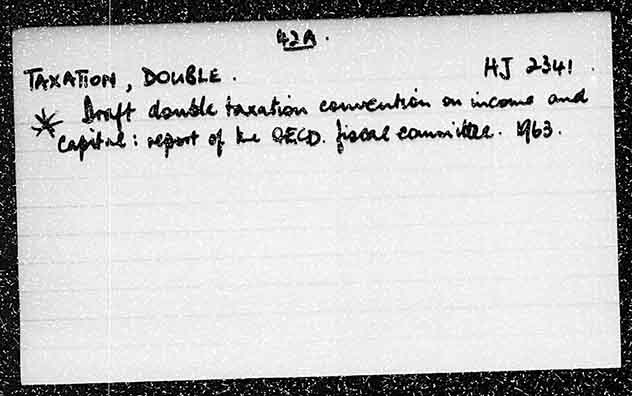 42A.
TAXATION, DOUBLE. HJ 2341.
* Draft double taxation convention on income and
capital: report of the OECD. fiscal committee. 1963.